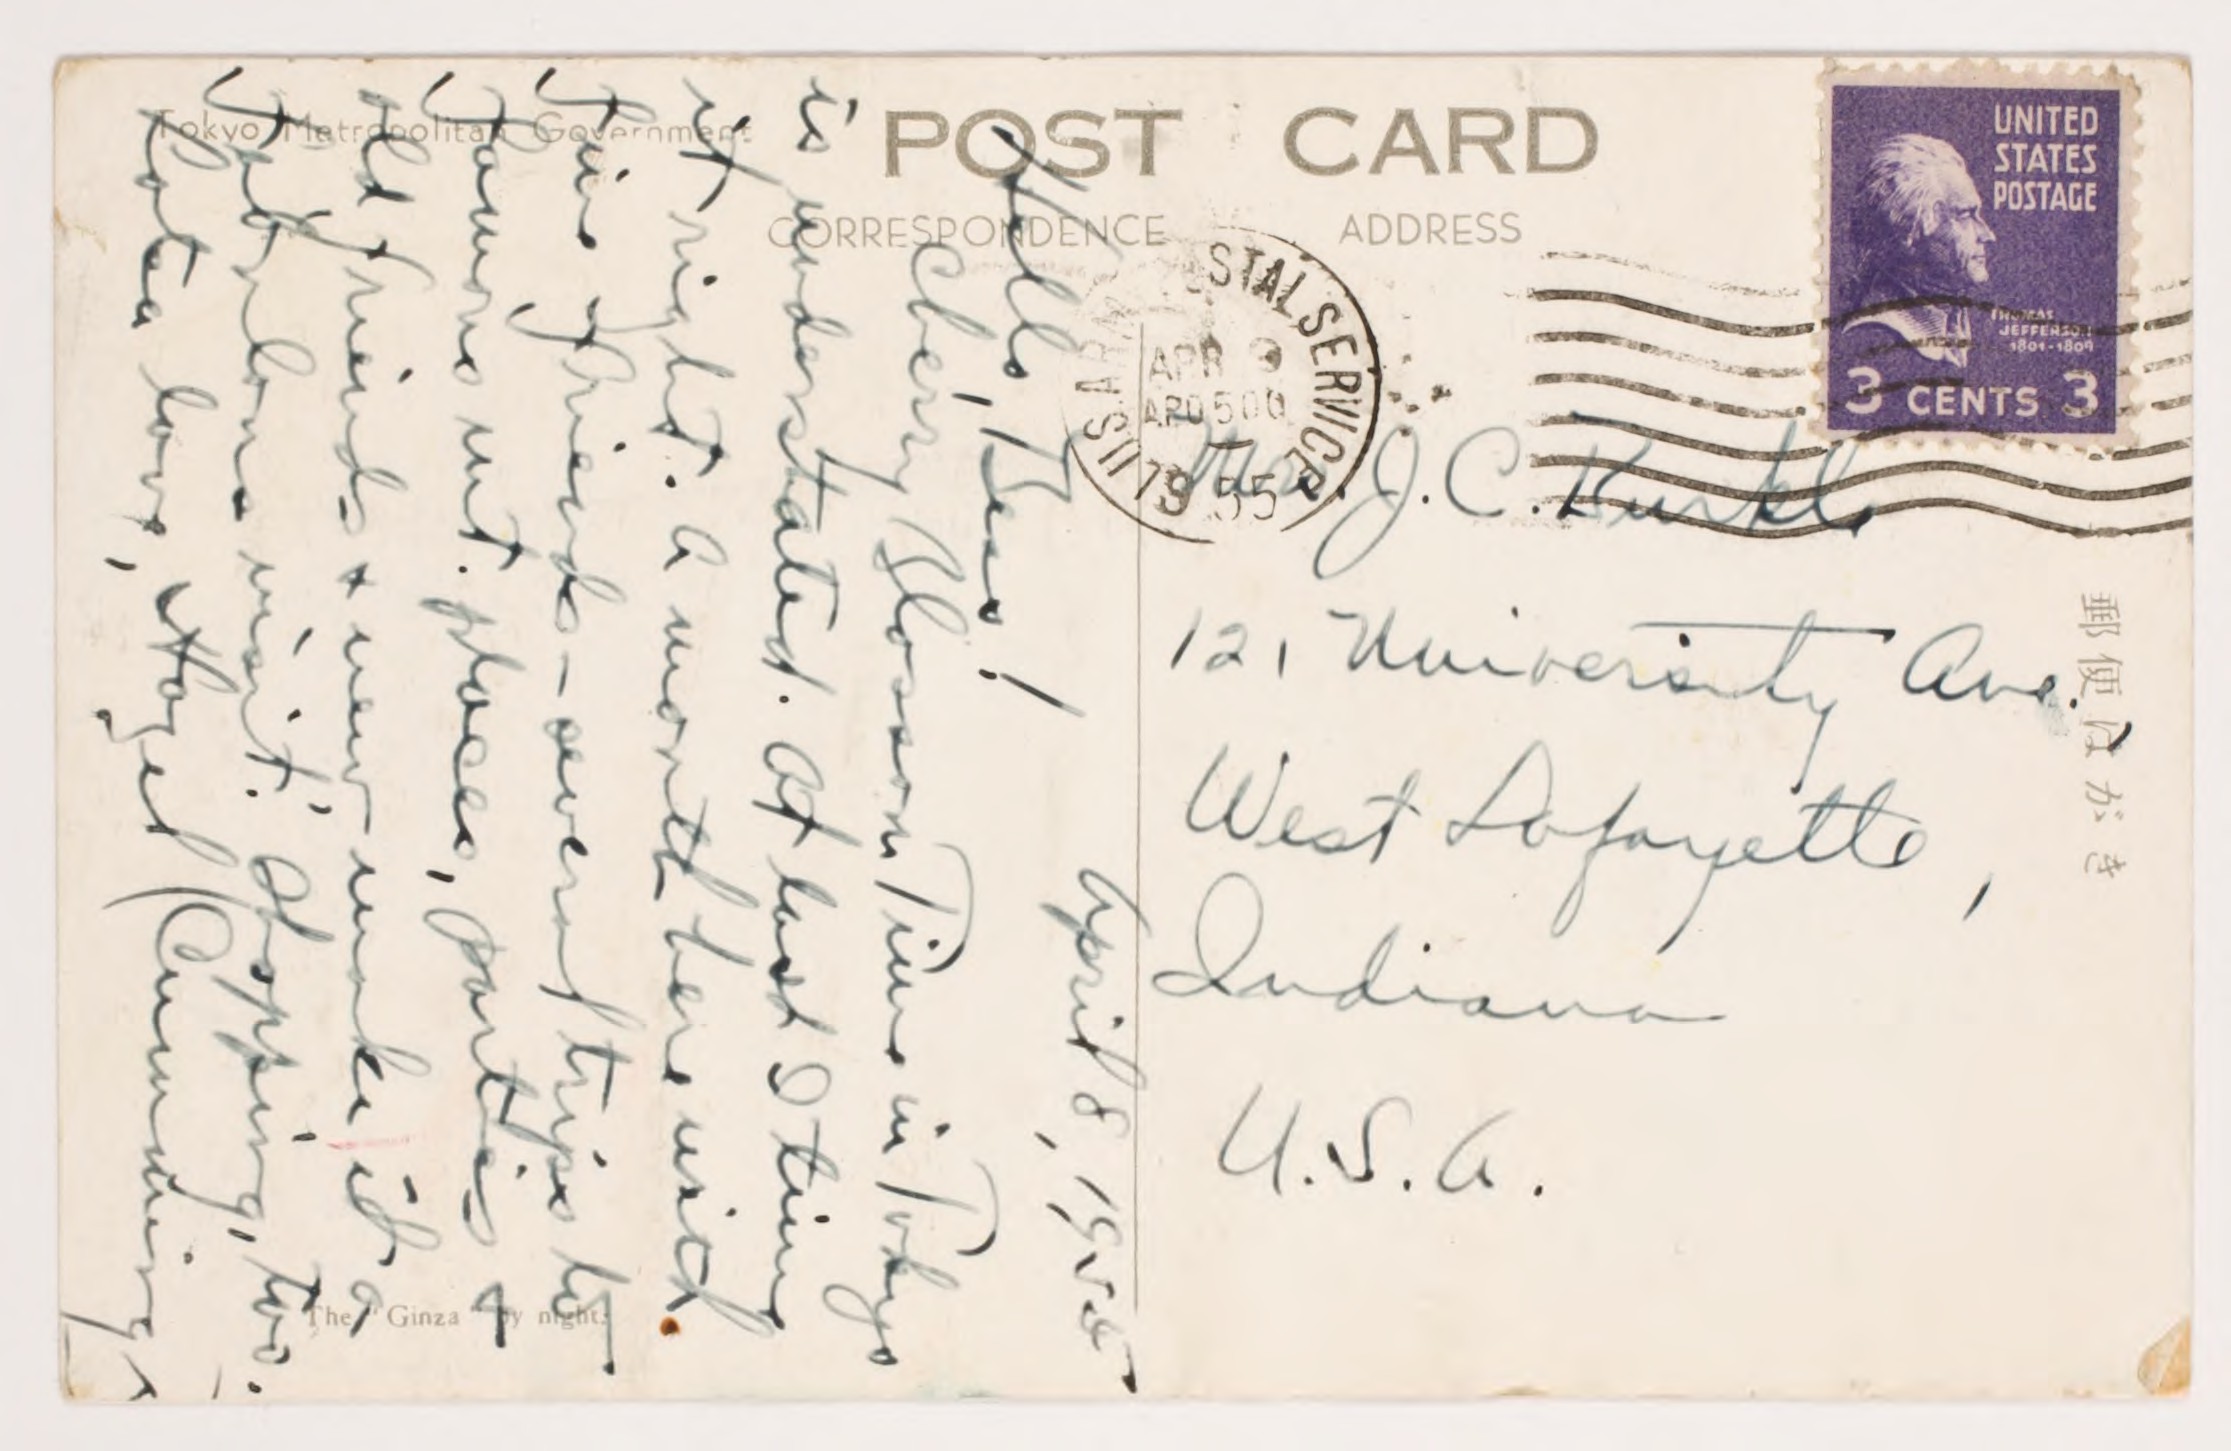 Tokyo Metropolitan Government
POST CARD
CORRESPONDENCE
ADDRESS
UNITED
STATES
POSTAGE
THOMAS
JEFFERSON
1801-1809
3 CENTS 3
US ARMY POSTAL SERVICE
APR 9
APO 500
1955
April 8, 1955
Hello, Bess!
Cherry Blossom Time in Tokyo
is understated. At last I timed
it right. A month here with
fine friends - several trips to
famous int. places, parties &
old friends & new make it a
fabulous visit. Shopping, too.
Lotsa love, Hazel (Cummings)
Mrs. J. C. Kunkle
121 University Ave.
West Lafayette,
Indiana
U.S.A.
郵便はがき
The "Ginza" by night.